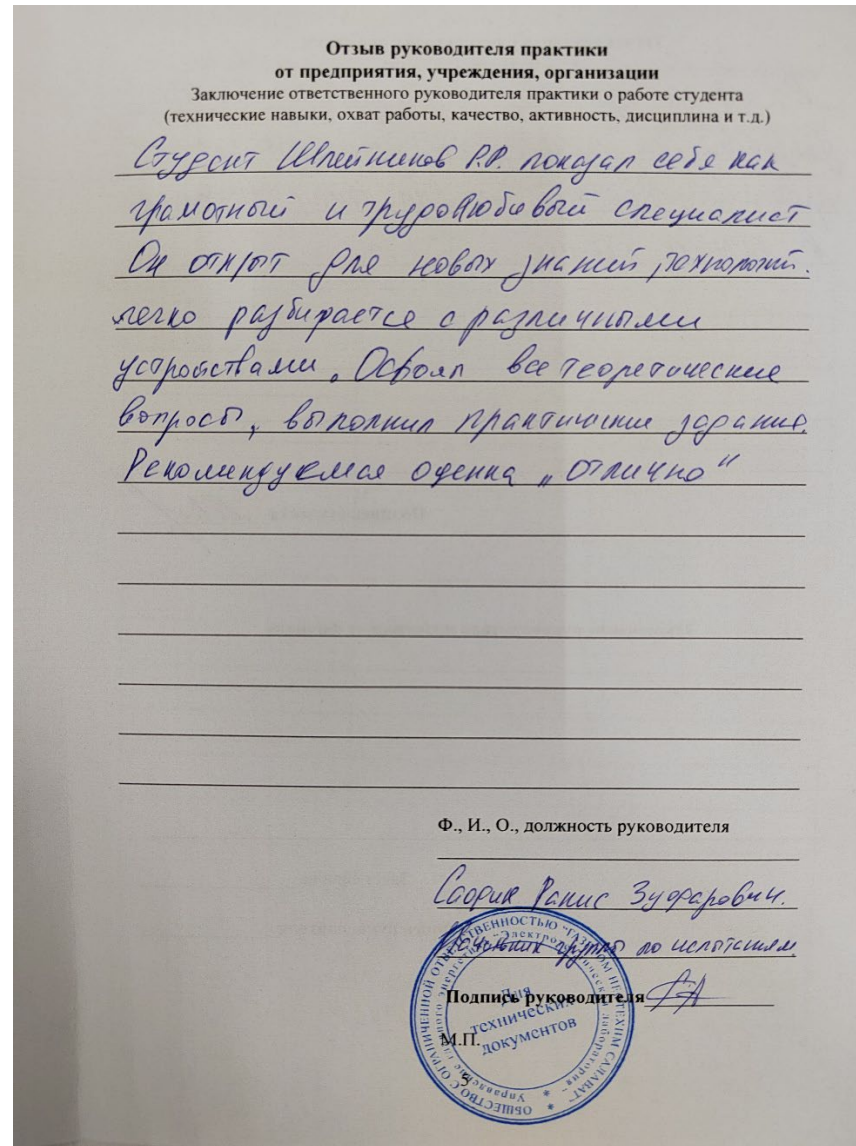 Отзыв руководителя практики
от предприятия, учреждения, организации
Заключение ответственного руководителя практики о работе студента
(технические навыки, охват работы, качество, активность, дисциплина и т.д.)
Студент Шлейников Р.Р. показал себя как
грамотный и трудолюбивый специалист
Он открыт для новых знаний, технологий.
легко разбирается с различными
устройствами. Освоил все теоретические
вопросы, выполнил практические задание.
Рекомендуемая оценка „отлично“
Ф., И., О., должность руководителя
Ранис Зуфарович.
Начальник группы по испытаниям
Подпись руководителя
М.П.
5
ОБЩЕСТВО С ОГРАНИЧЕННОЙ ОТВЕТСТВЕННОСТЬЮ "ГАЗПРОМ НЕФТЕХИМ САЛАВАТ"
Управление главного энергетика "Электротехническая лаборатория"
Для
технических
документов